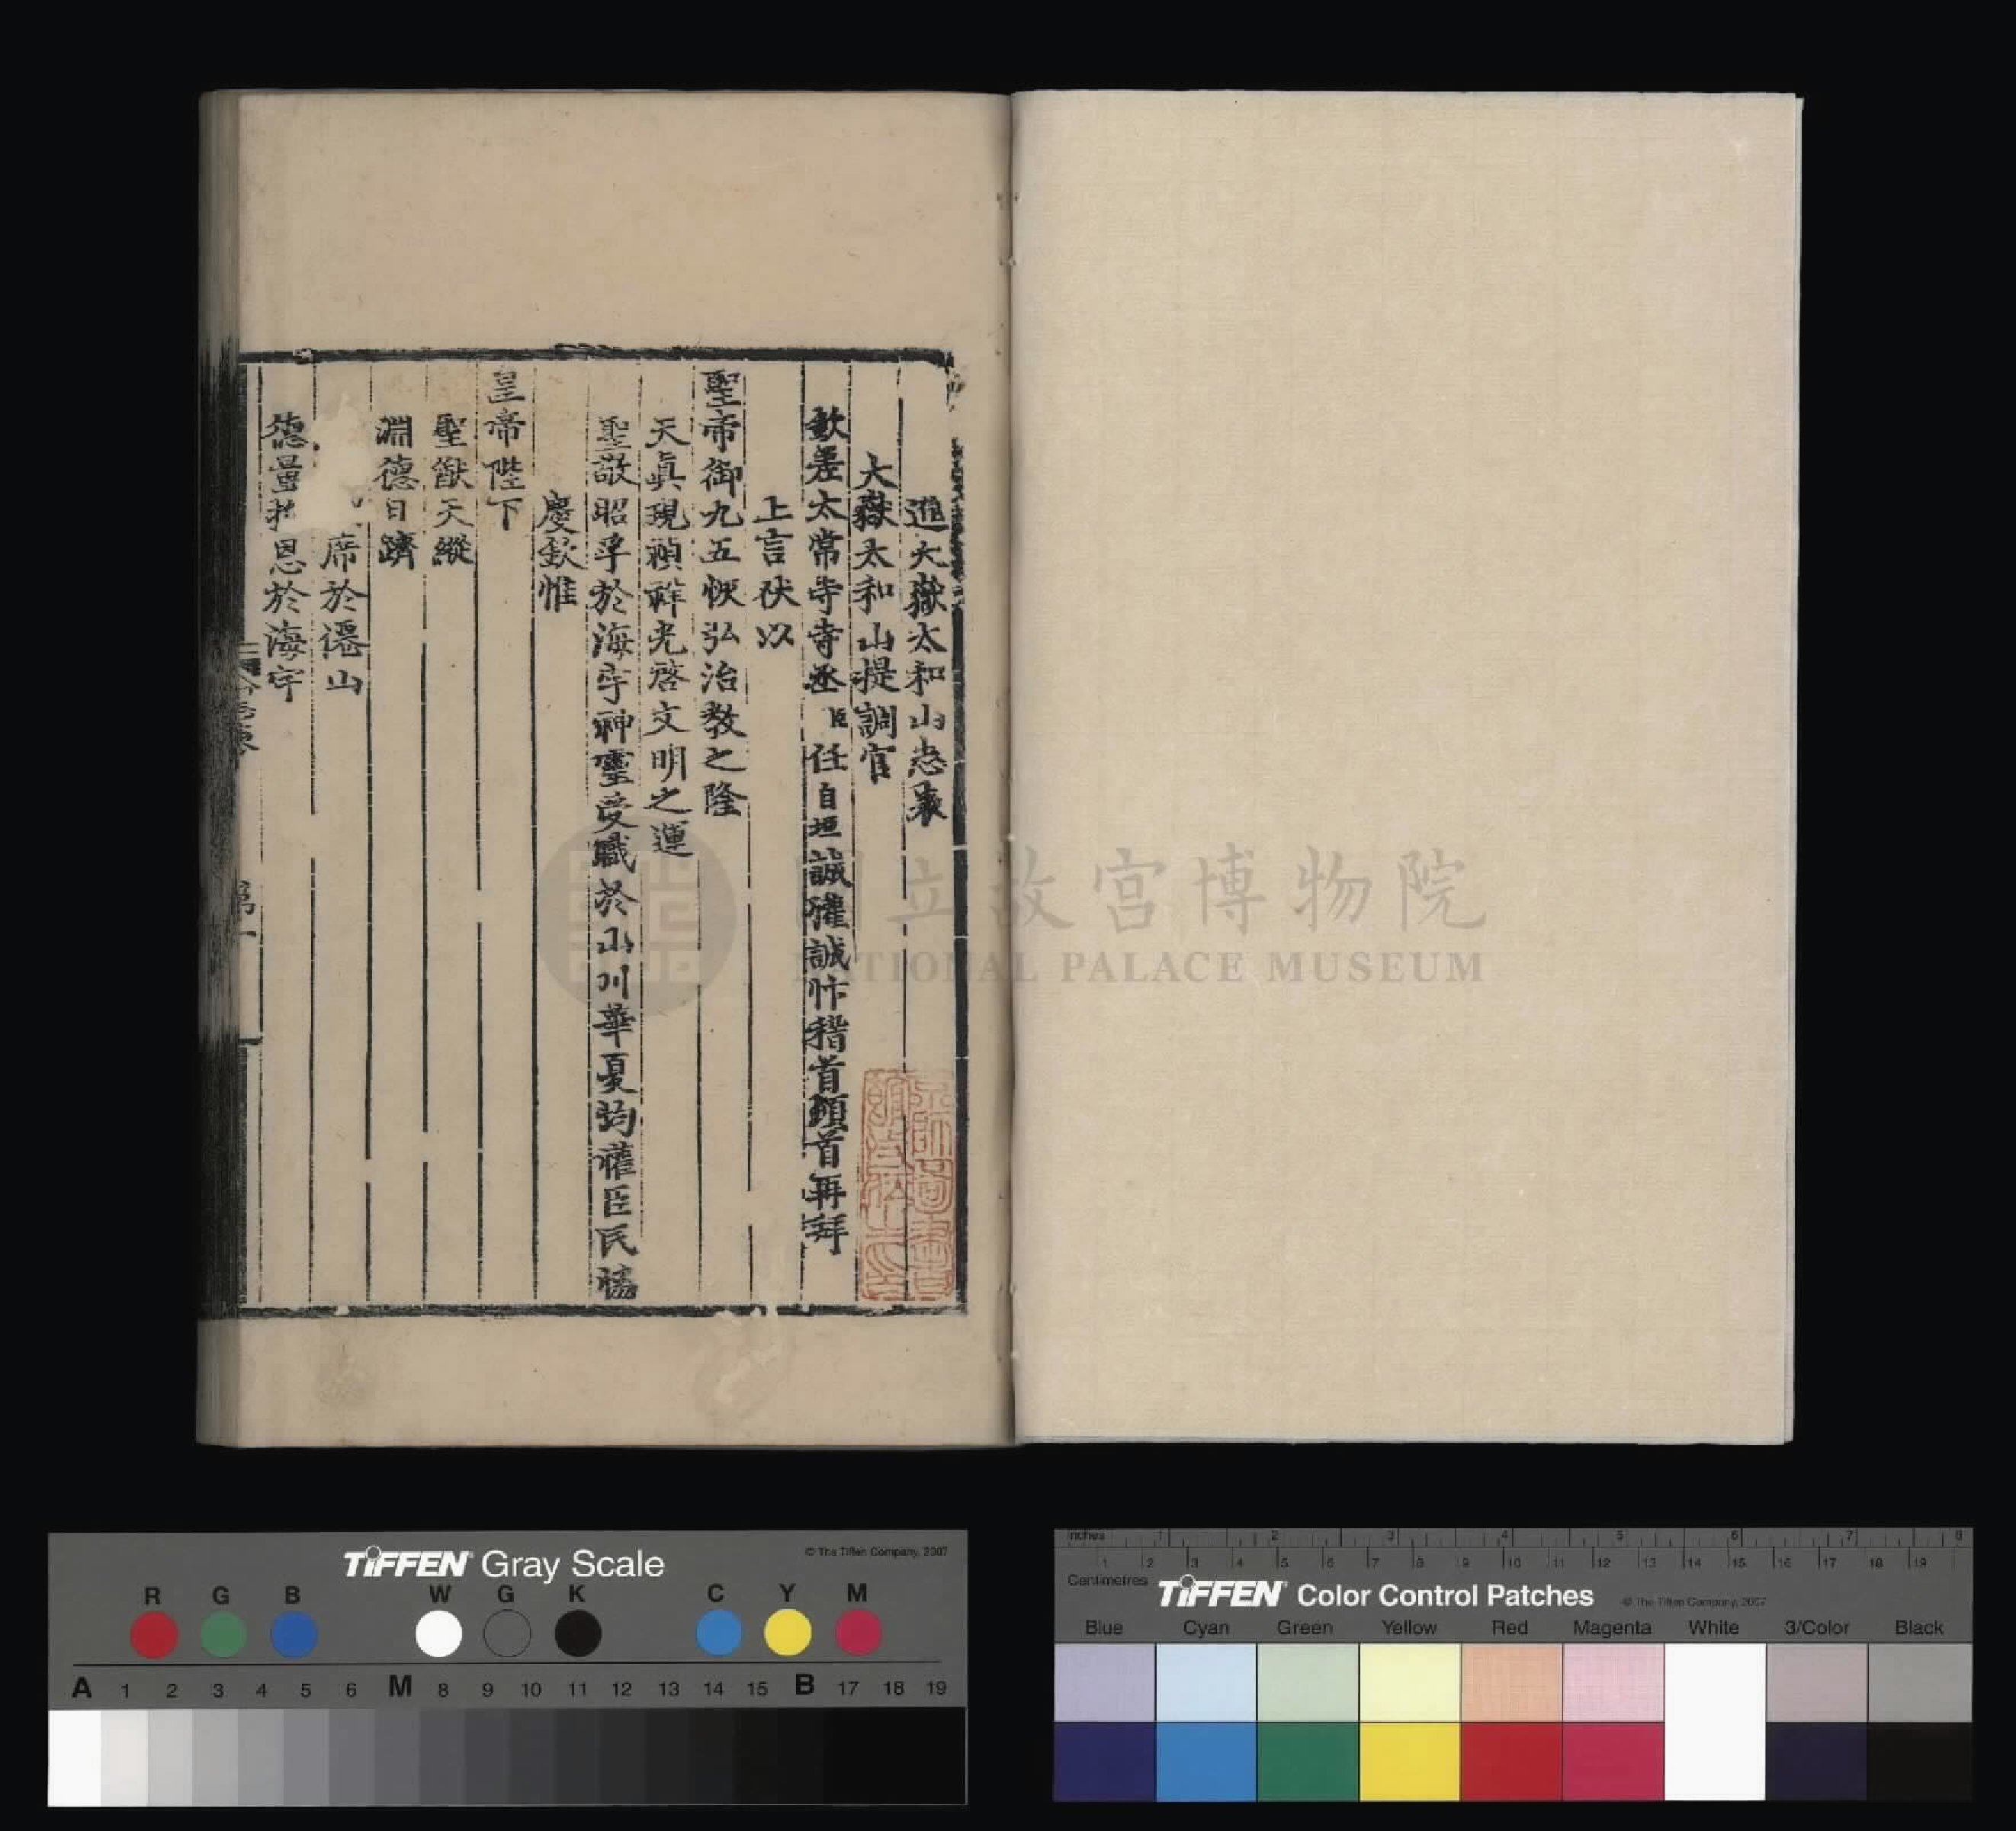 進大嶽太和山志表
大嶽太和山提調官
欽差太常寺寺丞臣任自垣誠懽誠忭稽首頓首再拜
上言伏以
聖帝御九五恢弘治教之隆
天眞現禎祥光啓文明之運
聖敬昭孚於海宇神靈受職於山川華夏均懽臣民協
慶欽惟
皇帝陛下
聖猷天縱
淵德日躋
席於僊山
德量 恩於海宇
第一
國立故宮博物院
NATIONAL PALACE MUSEUM
TIFFEN Gray Scale
© The Tiffen Company, 2007
R G B W G K C Y M
A 1 2 3 4 5 6 M 8 9 10 11 12 13 14 15 B 17 18 19
Inches 1 2 3 4 5 6 7 8
1 2 3 4 5 6 7 8 9 10 11 12 13 14 15 16 17 18 19
Centimetres
TIFFEN Color Control Patches
© The Tiffen Company, 2007
Blue Cyan Green Yellow Red Magenta White 3/Color Black